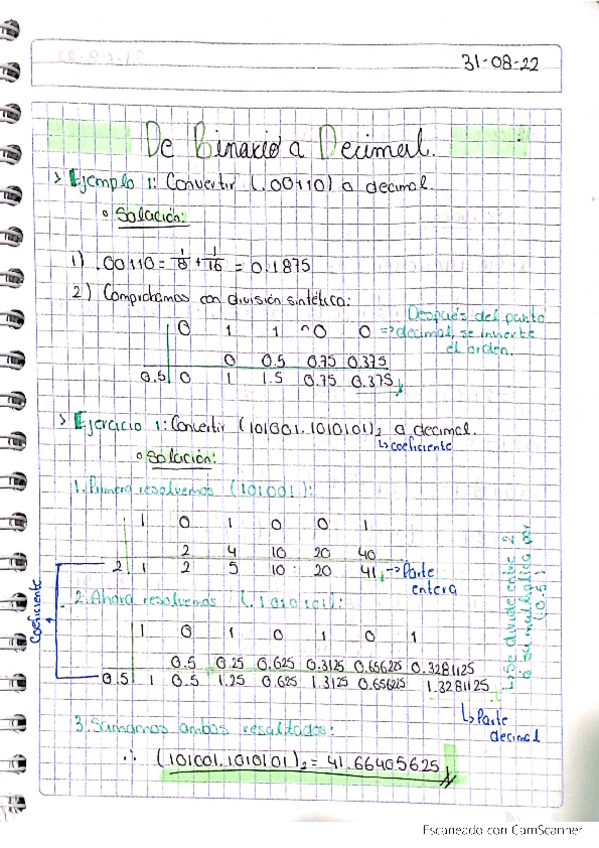 31-08-22
De Binario a Decimal.
> Ejemplo 1: Convertir (.00110) a decimal.
° Solución:
1) .00110 = 1/8 + 1/16 = 0.1875
2) Comprobamos con división sintética:
Después del punto
0 1 1 0 0 => decimal se invierte
el orden.
0 0.5 0.75 0.375
0.5 0 1 1.5 0.75 0.375
> Ejercicio 1: Convertir (101001.1010101)₂ a decimal.
↳ coeficiente
° Solución:
1. Primero resolvemos (101001):
1 0 1 0 0 1
2 4 10 20 40
2 1 2 5 10 20 41 -> Parte
entera
Coeficiente
2. Ahora resolvemos (.1010101):
1 0 1 0 1 0 1
0.5 0.25 0.625 0.3125 0.656225 0.3281125
0.5 1 0.5 1.25 0.625 1.3125 0.656225 1.3281125
↳ Se divide entre 2
o se multiplica por
(0.5)
↳ Parte
decimal
3. Sumamos ambos resultados:
∴ (101001.1010101)₂ = 41.66405625
Escaneado con CamScanner